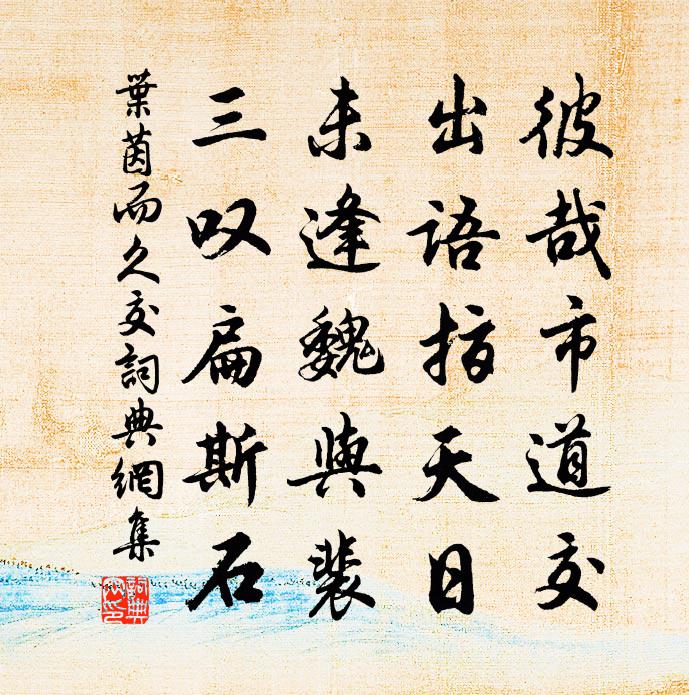 彼哉市道交
出语指天日
未逢魏與裴
三叹扁斯石
葉茵而久交詞典網集